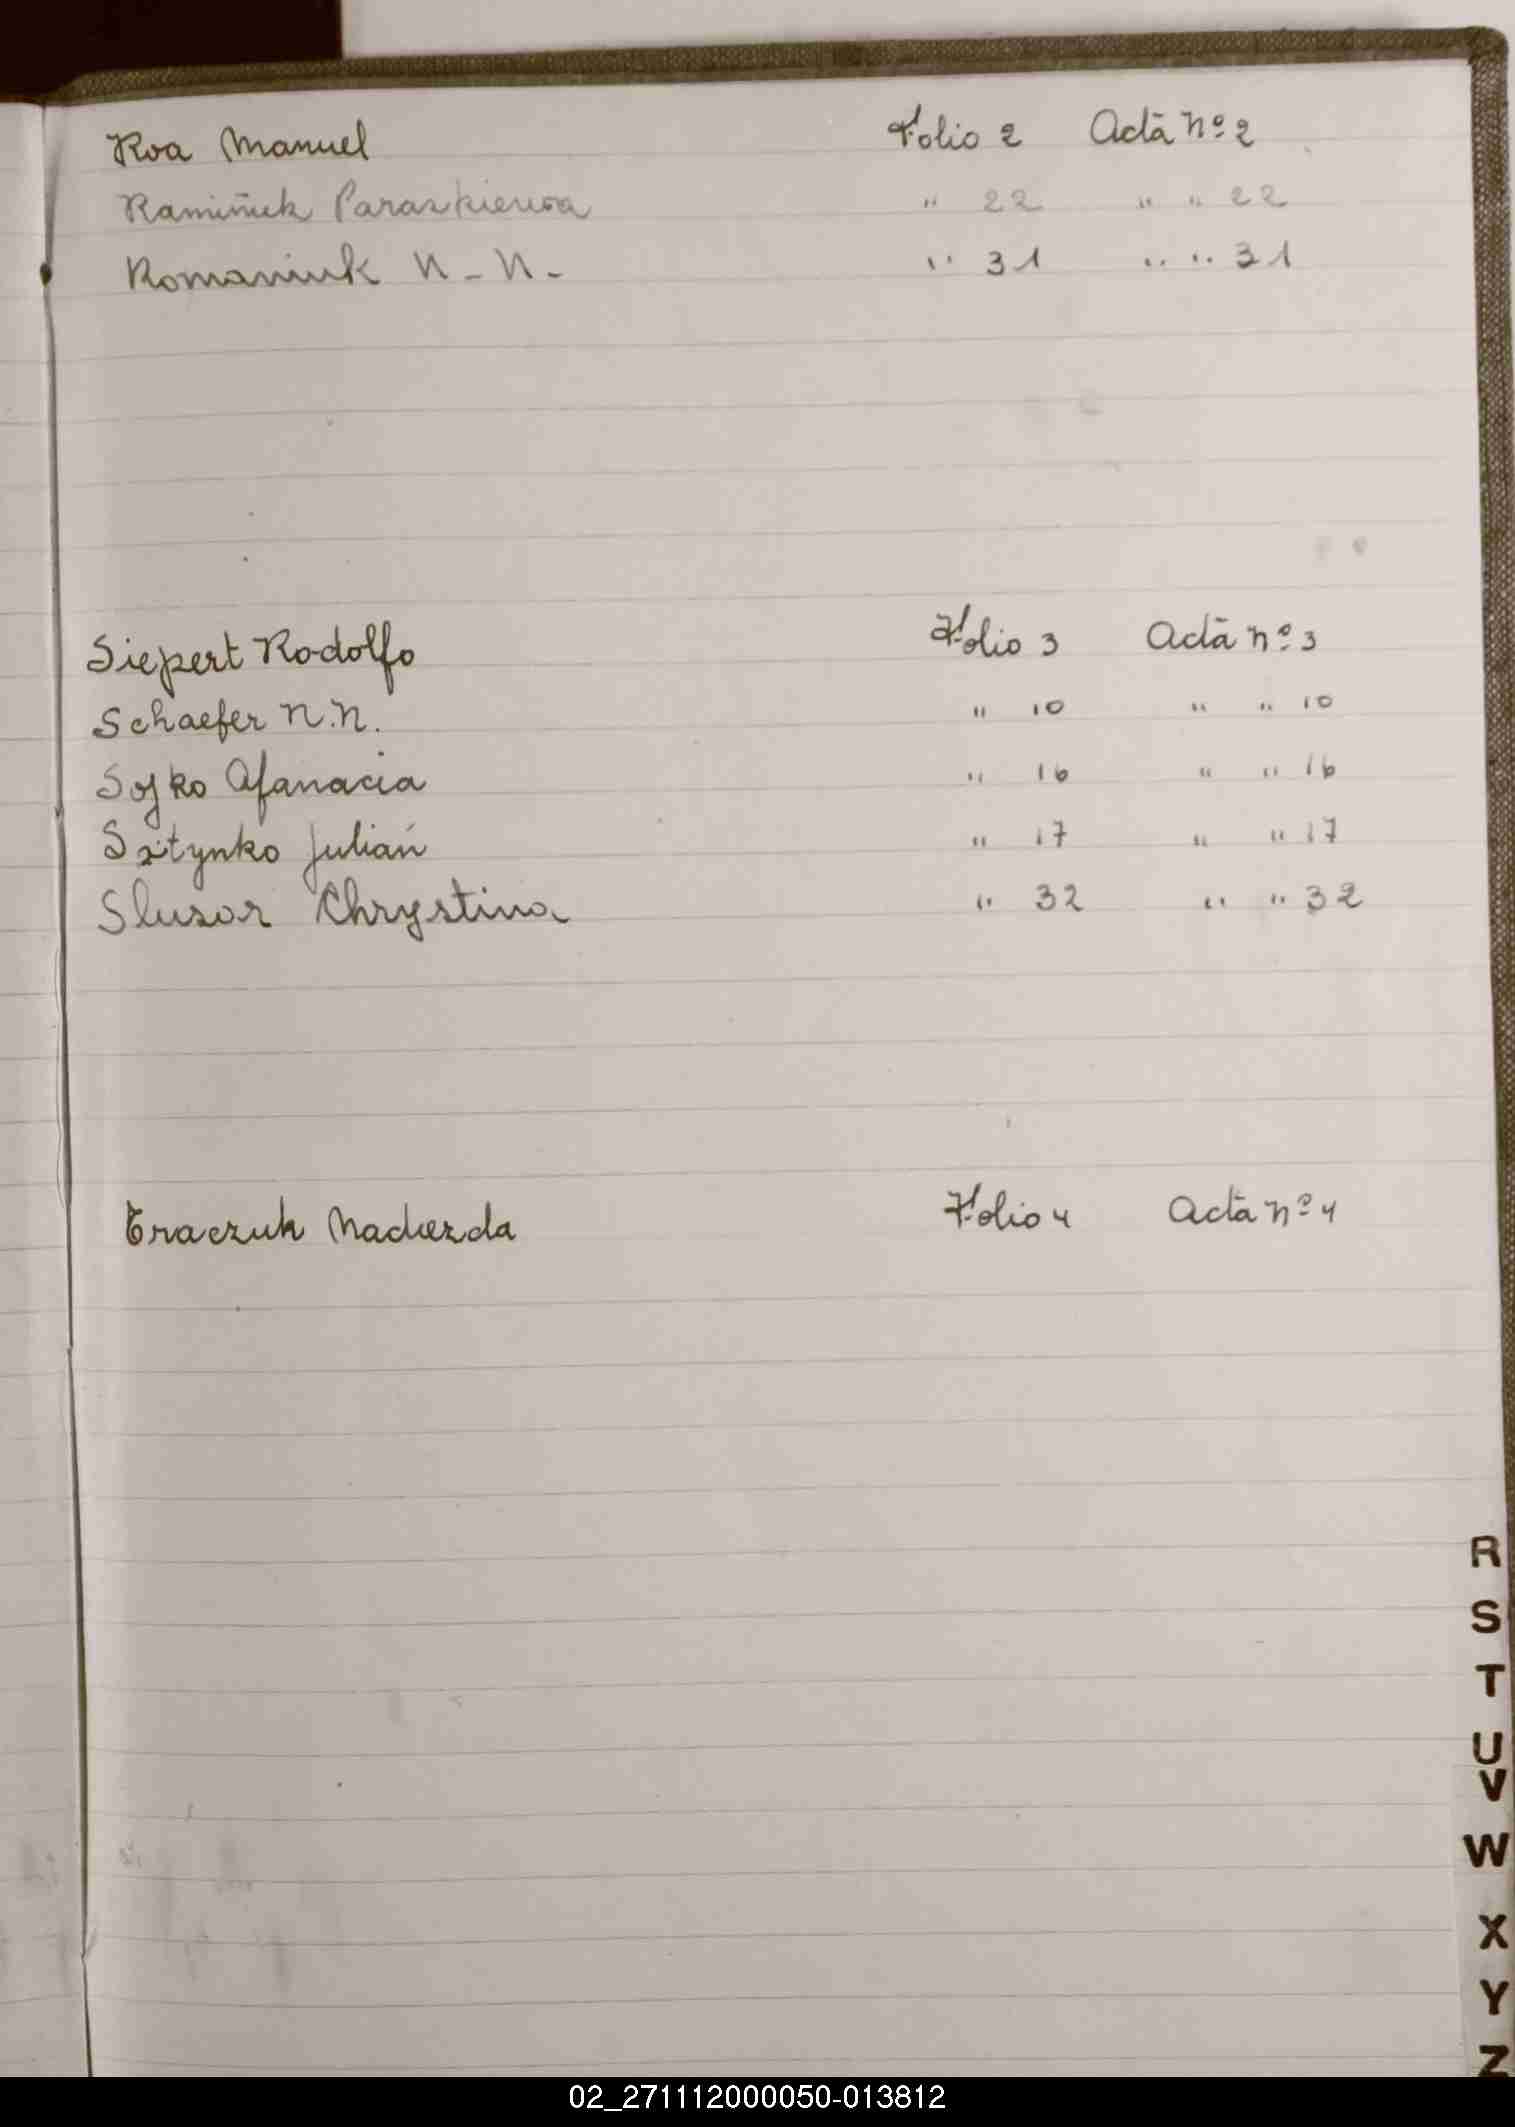 Roa Manuel Folio 2 Acta Nº 2
Ramiñuk Paraskiewa " 22 " " 22
Romaniuk N - N - " 31 " " 31
Siepert Rodolfo Folio 3 Acta Nº 3
Schaefer N.N. " 10 " " 10
Sojko Afanacia " 16 " " 16
Sztynko Julián " 17 " " 17
Slusar Chrystina " 32 " " 32
Traczuk Nadiezda Folio 4 Acta Nº 4
R
S
T
U
V
W
X
Y
Z
02_271112000050-013812